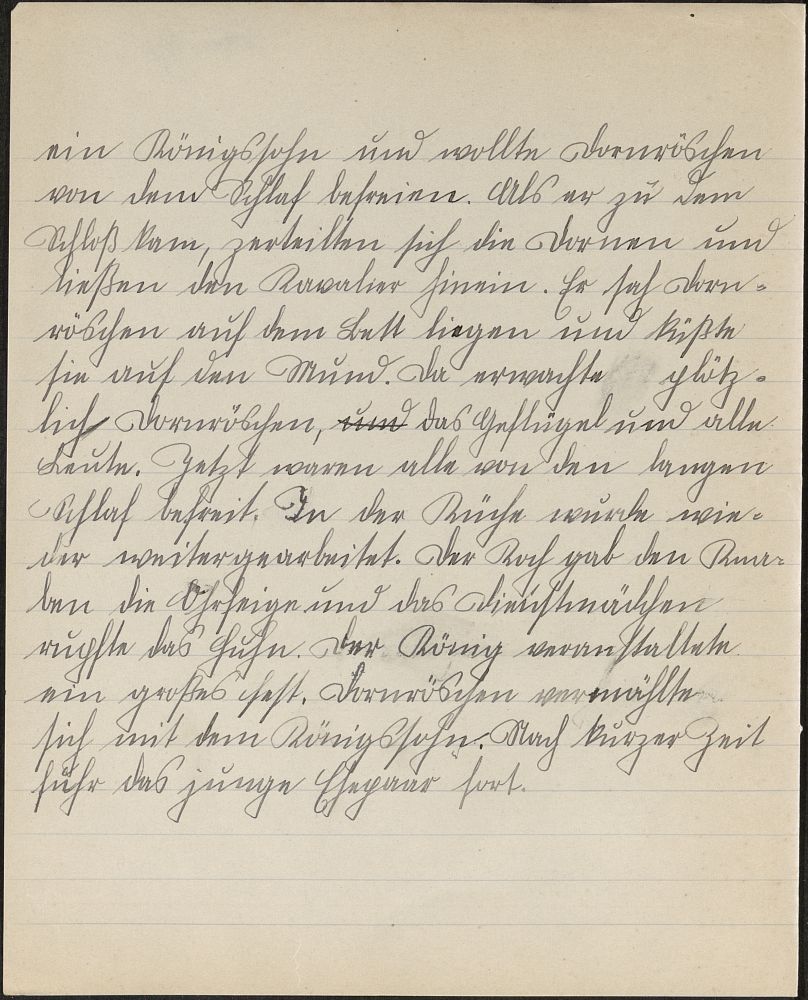 ein Königssohn und wollte Dornröschen
von dem Schlaf befreien. Als er zu dem
Schloß kam, zerteilten sich die Dornen und
ließen den Kavalier hinein. Er sah Dorn-
röschen auf dem Bett liegen und küßte
sie auf den Mund. Da erwachte plötz-
lich Dornröschen, und das Geflügel und alle
Leute. Jetzt waren alle von den langen
Schlaf befreit. In der Küche wurde wie-
der weitergearbeitet. Der Koch gab den Kna-
ben die Ohrfeige und das Dienstmädchen
rupfte das Huhn. Der König veranstaltete
ein großes Fest. Dornröschen vermählte
sich mit dem Königssohn. Nach kurzer Zeit
fuhr das junge Ehepaar fort.